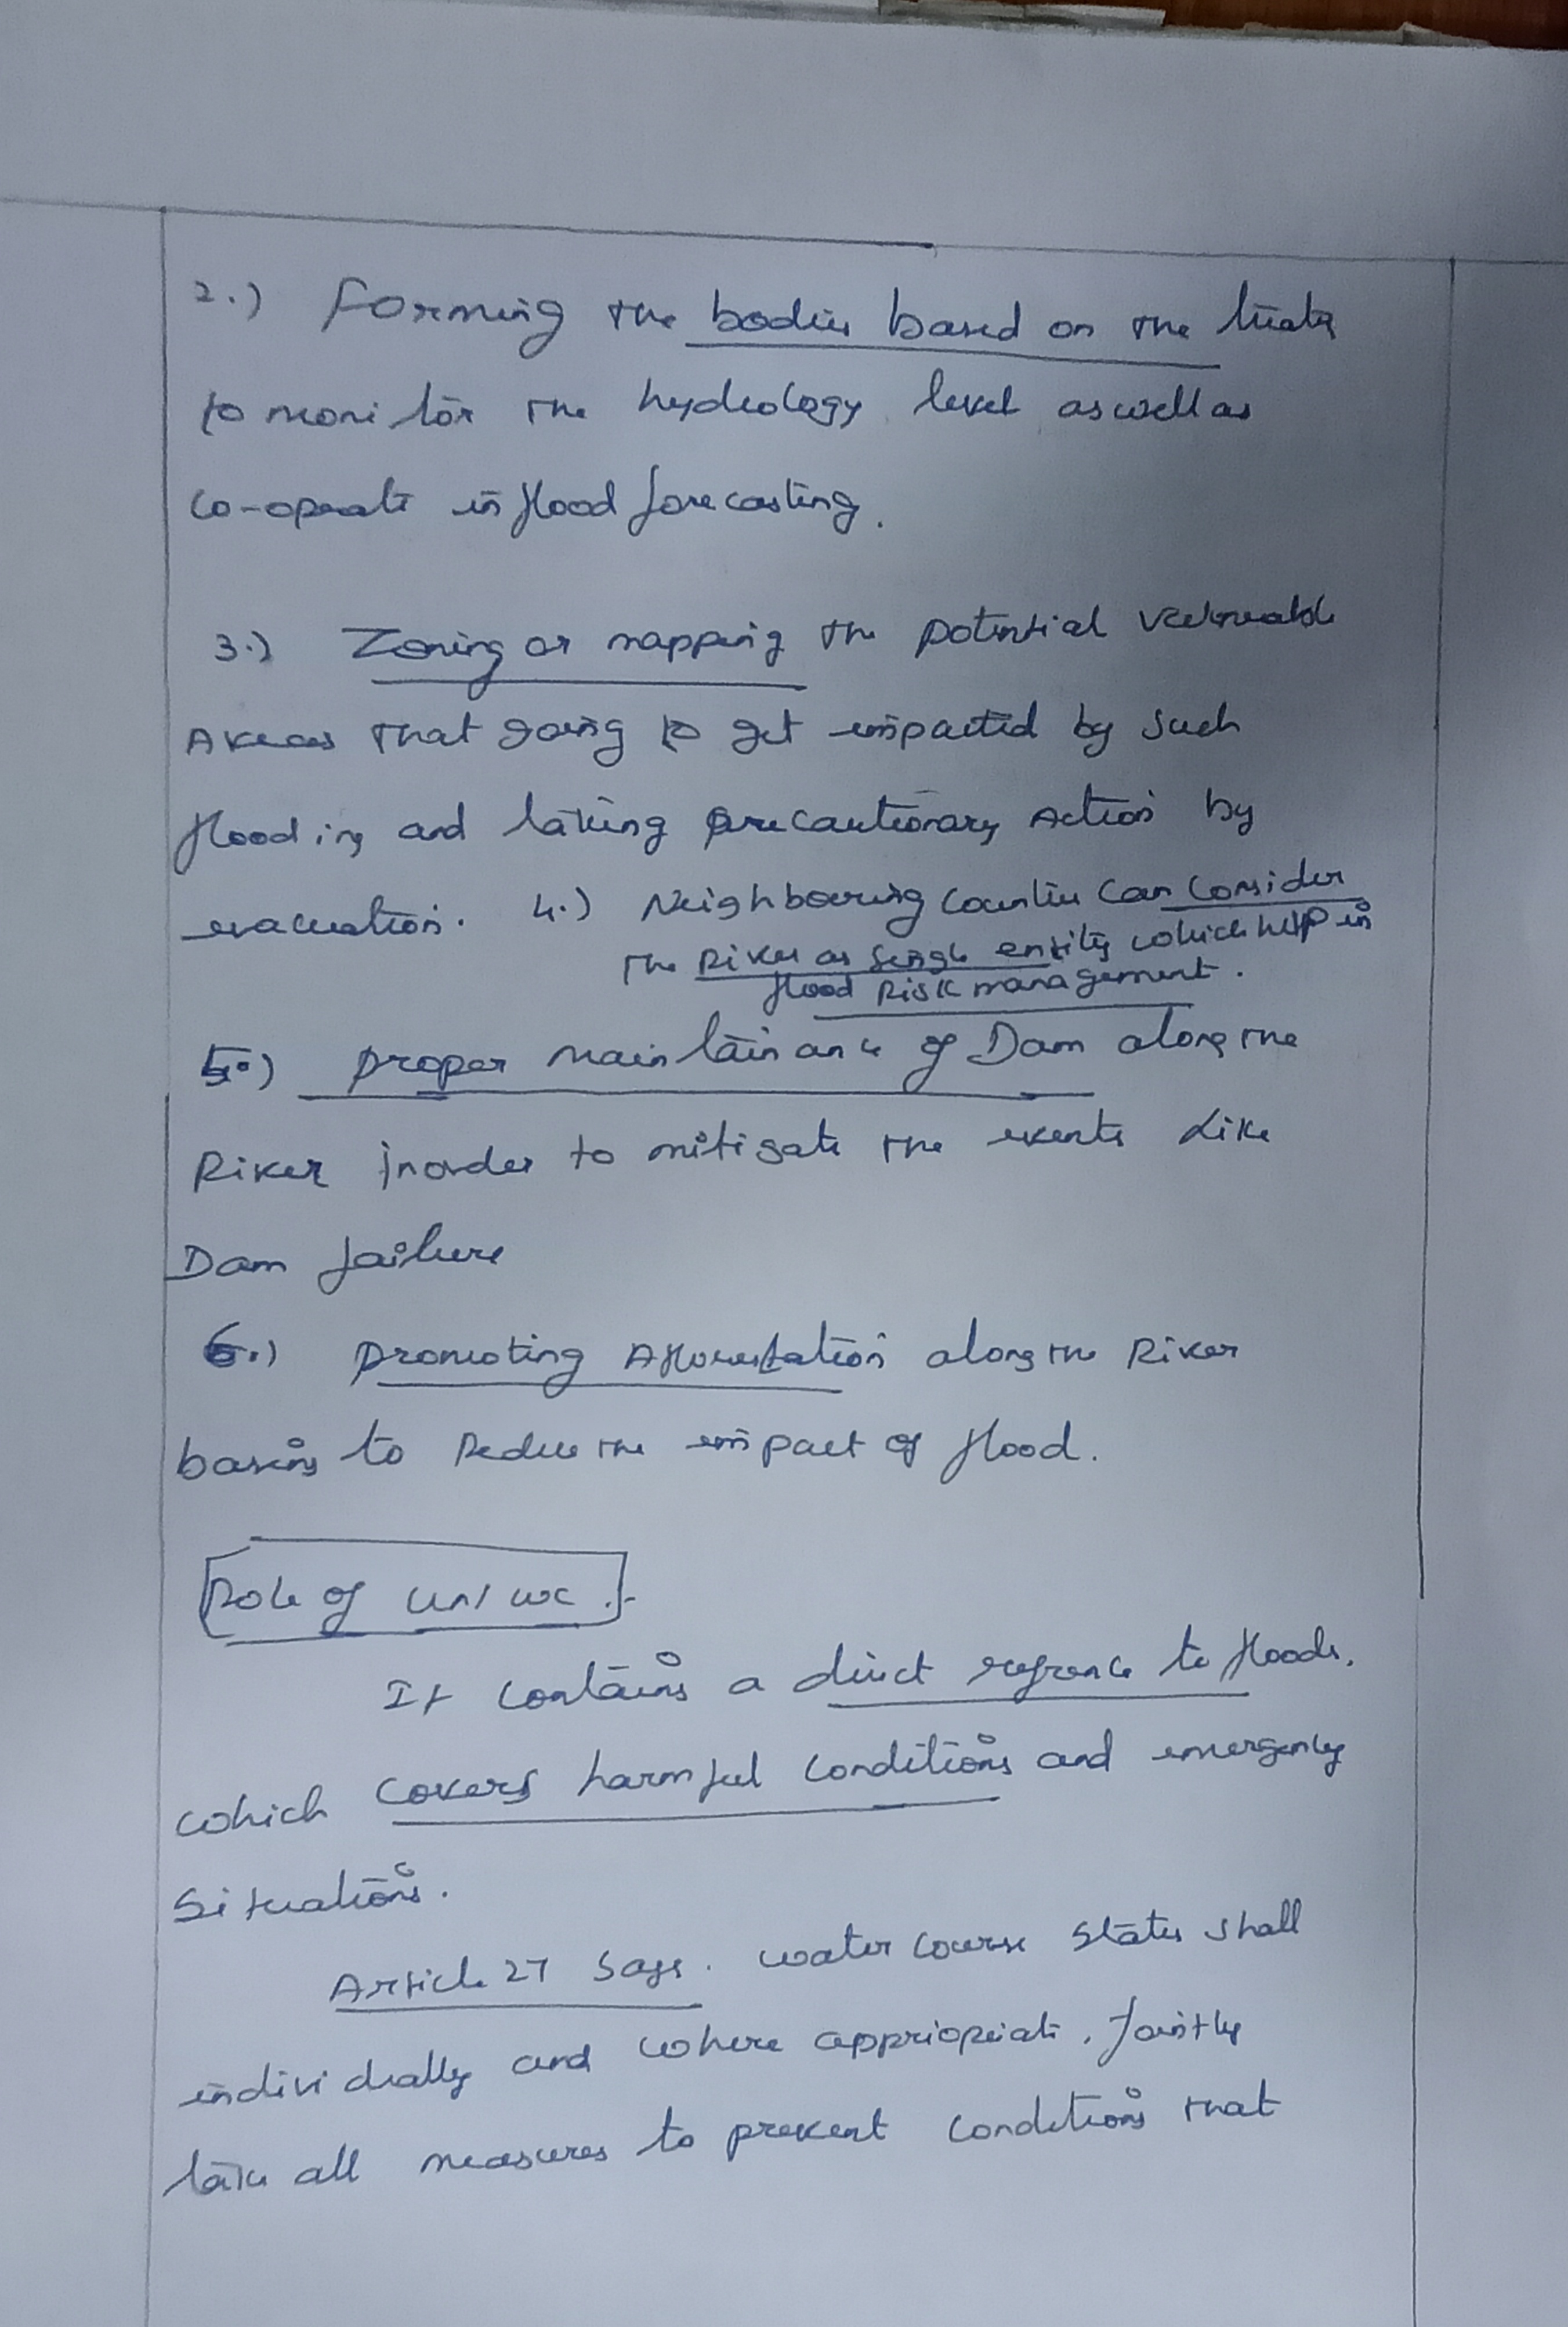 2.) Forming the bodies based on the treaty
to monitor the hydrology level aswell as
Co-operate in flood forecasting.
3.) Zoning or mapping the potential vulnerable
Areas that going to get impacted by such
flooding and taking precautionary Action by
evacuation. 4.) Neighbouring Countries Can Consider
The River as Single entity which help in
flood Risk management.
5.) proper maintainance of Dam along the
River inorder to mitigate the events Like
Dam failure
6.) promoting Afforestation along the River
basins to Reduce the impact of flood.
Role of UNIWC :-
It contains a direct refrence to floods.
which covers harmful conditions and emergency
Situations.
Article 27 Says. water course States shall
individually and where appriopriate, Jointly
take all measures to prevent conditions that